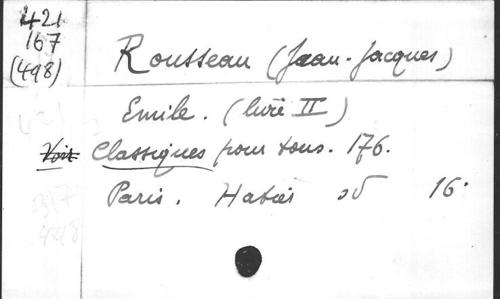 421
167
(498)
Rousseau (Jean-Jacques)
Emile. (livre II)
Voir Classiques pour tous. 176.
Paris. Hatier sd 16°